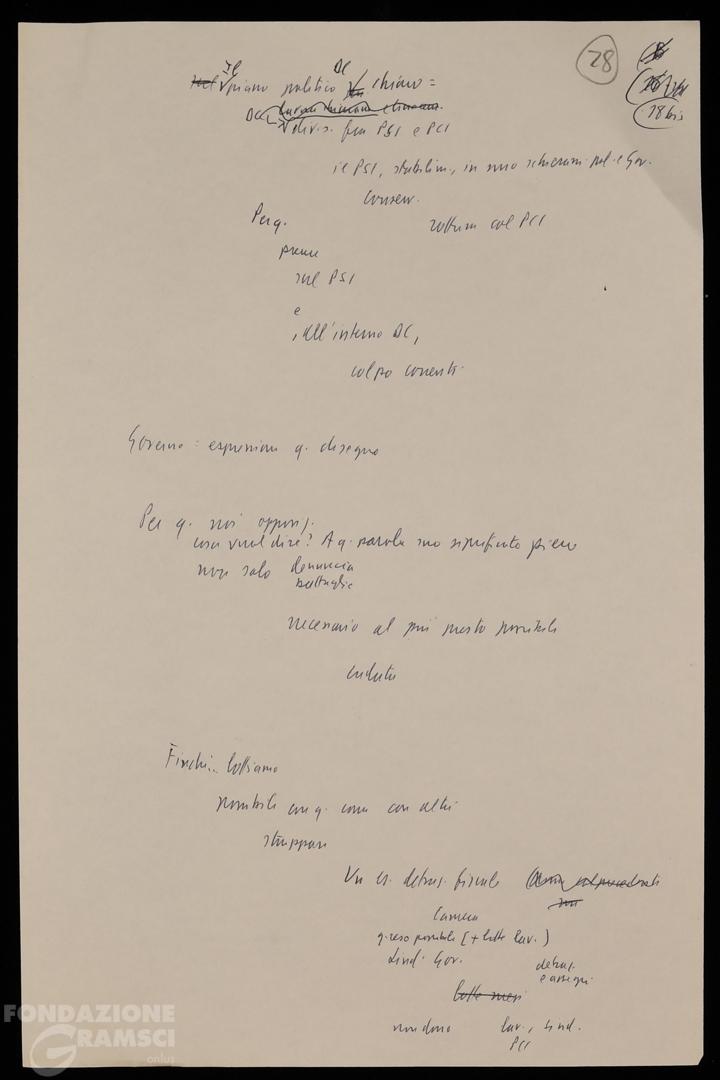 28
18 bis
Il
DC
piano politico chiaro =
DC divis. fra PSI e PCI
il PSI, stabilim., in suo schieram. pol. e Gov.
conserv.
Per q.
rottura col PCI
preme
sul PSI
e
, all'interno DC,
colpo correnti
Governo = espressione q. disegno
Per q. noi oppos.
cosa vuol dire? A q. parola suo significato pieno
non solo denuncia
battaglie
necessario al più presto possibile
caduta
Finché.. lottiamo
possibile con q. come con altri
strappare
Un es. detraz. fiscale
Camera
q. reso possibile (+ lotte lav.)
sind. Gov.
detraz.
e assegni
lav., sind.
PCI
FONDAZIONE
GRAMSCI
onlus